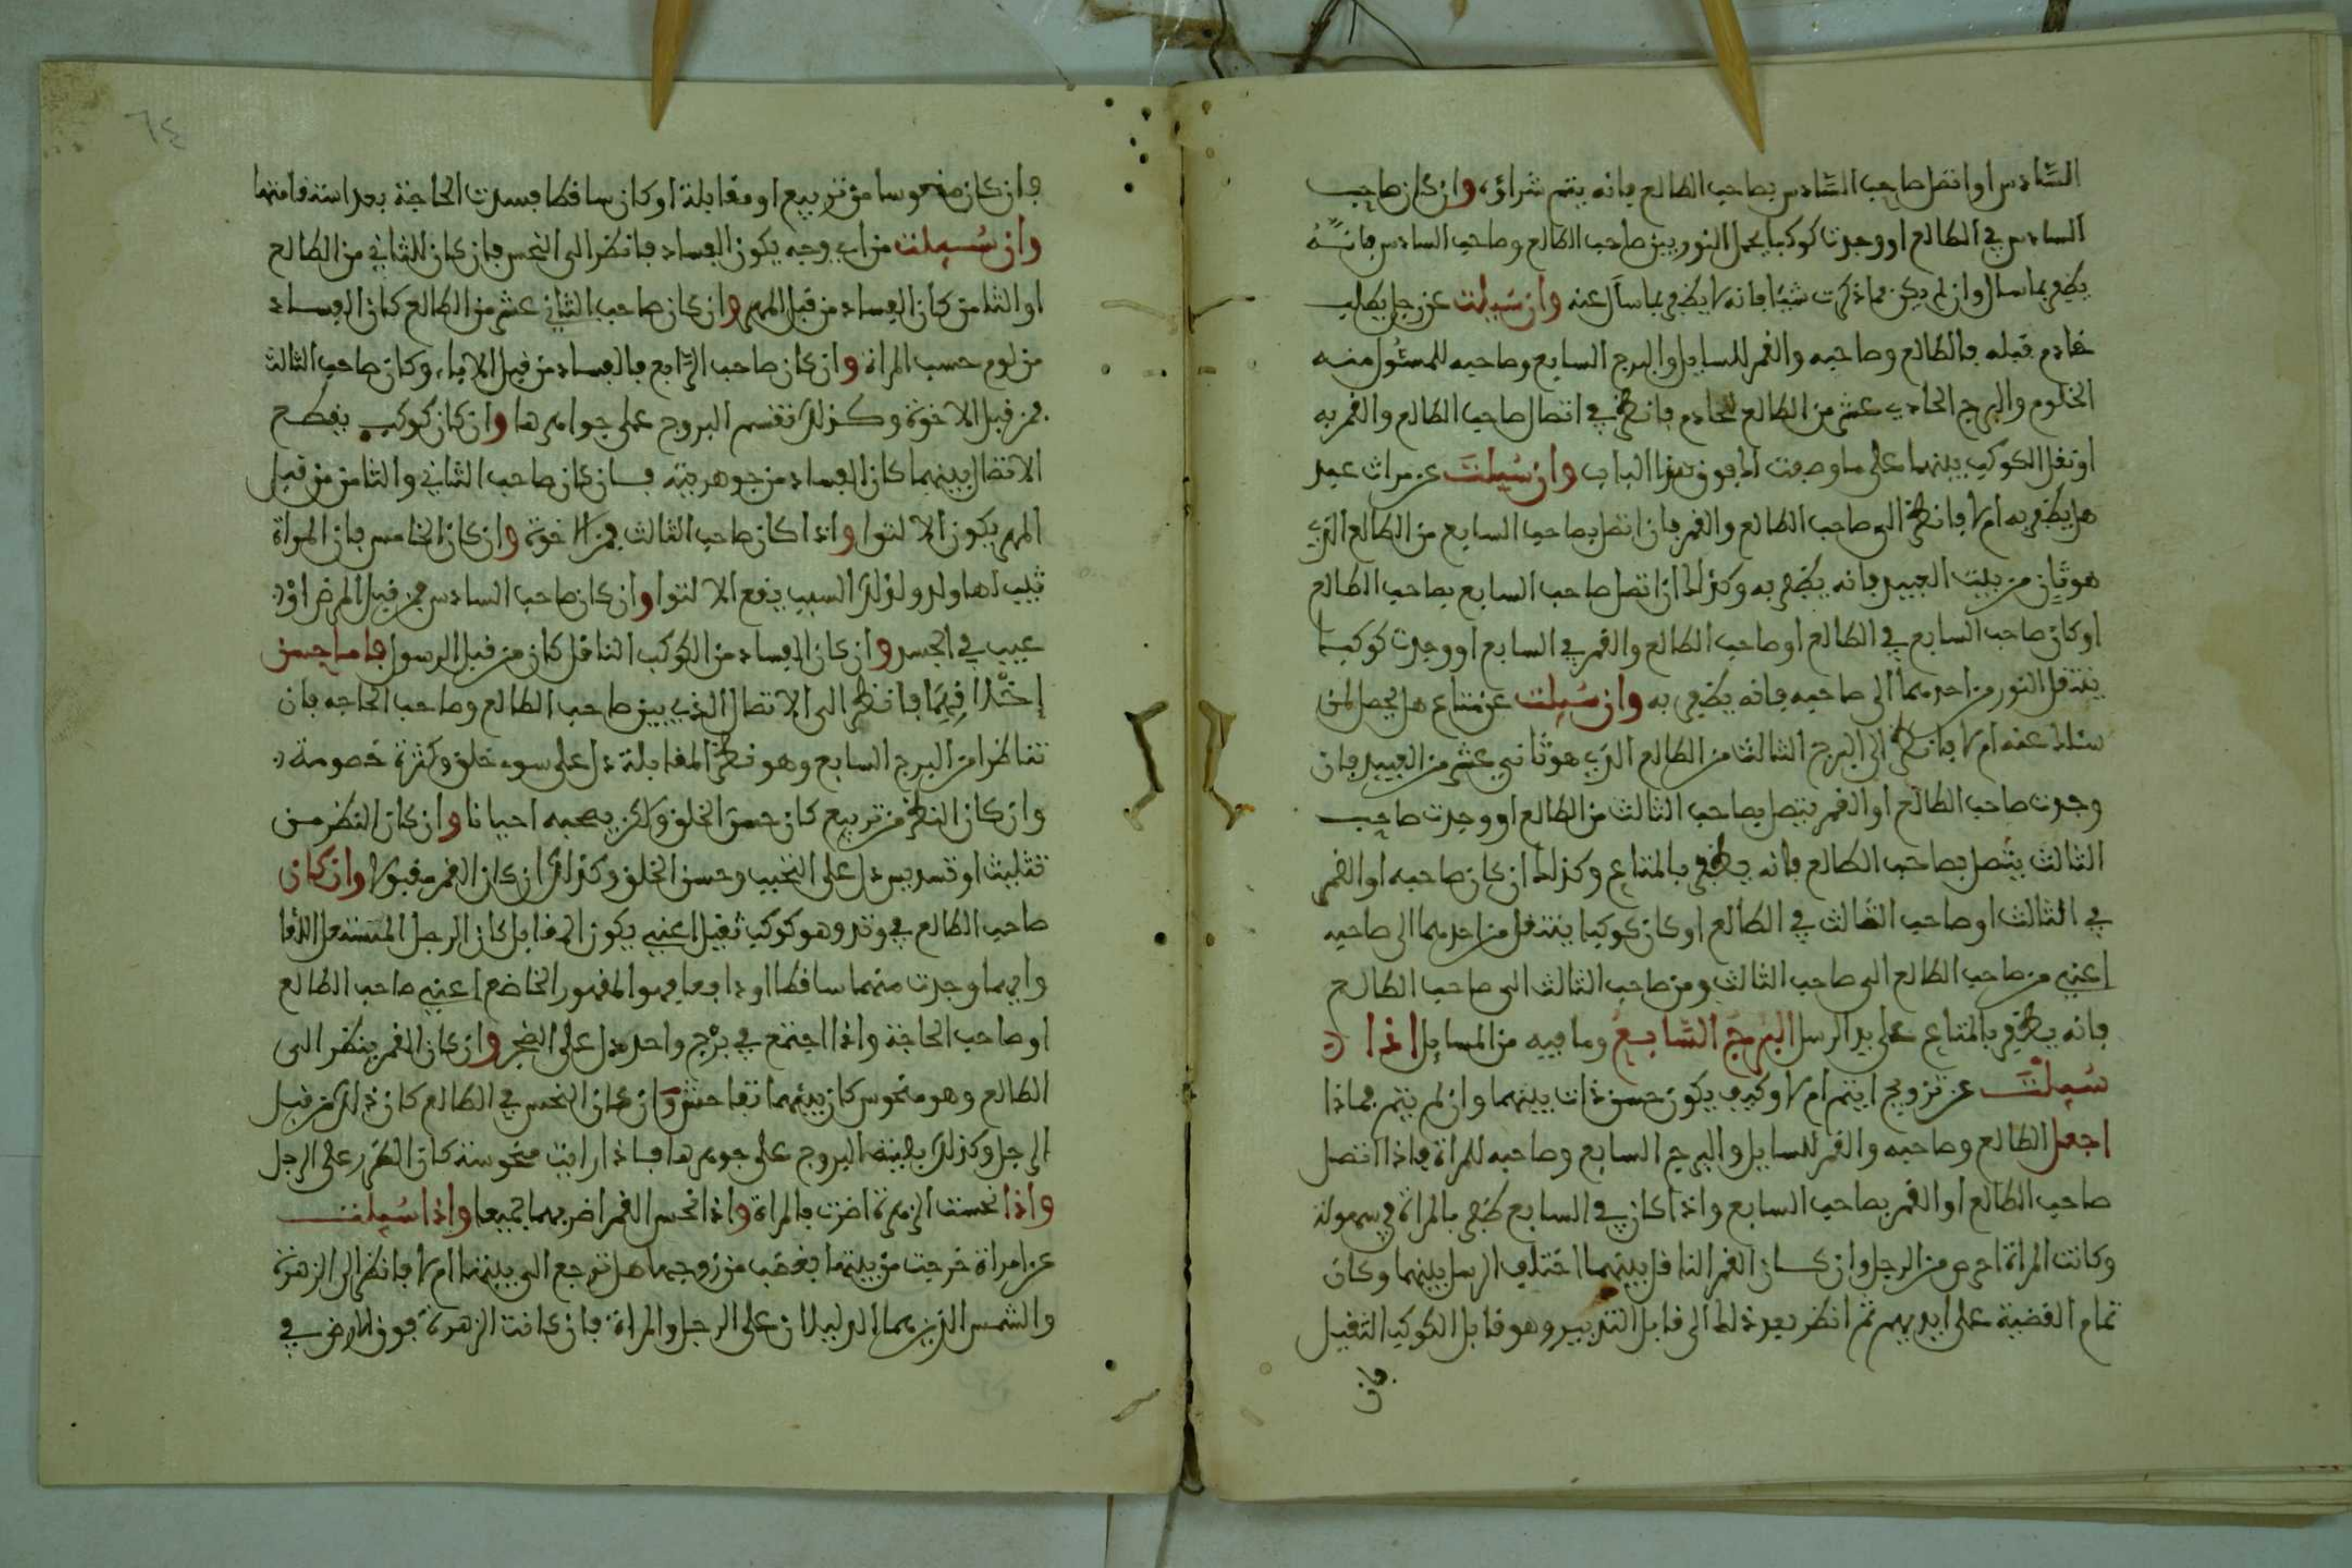 السادس او اتصل صاحب السادس بصاحب الطالع فانه يتم شراؤه وان كان صاحب
السادس في الطالع او وجدت كوكبا يحمل النور بين صاحب الطالع وصاحب السادس فانه
يظفر بما سال وان لم يكن مما ذكرت شيئا فانه لا يظفر بما سأل عنه وان سيلت عن رجل يطلب
خادم قبله فالطالع وصاحبه والقمر للسايل والبرج السابع وصاحبه للمسئول منه
الخدوم والبرج الحادي عشر من الطالع للخادم فانظر في اتصال صاحب الطالع والقمر به
او نقل الكوكب بينهما على ما وصفت لك فوق هذا الباب وان سيلت عن مراث عبد
هل يظفر به ام لا فانظر الى صاحب الطالع والقمر فان اتصل بصاحب السابع من الطالع الذي
هو ثان من بيت العبيد فانه يظفر به وكذلك ان اتصل صاحب السابع بصاحب الطالع
او كان صاحب السابع في الطالع او صاحب الطالع والقمر في السابع او وجدت كوكبا
ينقل النور من احدهما الى صاحبه فانه يظفر به وان سيلت عن متاع هل يحصل لمن
سالك عنه ام لا فانظر الى البرج الثالث من الطالع الذي هو ثاني عشر من العبيد فان
وجدت صاحب الطالع او القمر يتصل بصاحب الثالث من الطالع او وجدت صاحب
الثالث يتصل بصاحب الطالع فانه يظفر بالمتاع وكذلك ان كان صاحبه او القمر
في الثالث او صاحب الثالث في الطالع او كان كوكبا ينتقل من احدهما الى صاحبه
اعني من صاحب الطالع الى صاحب الثالث ومن صاحب الثالث الى صاحب الطالع
فانه يظفر بالمتاع على يد الرسل البرج السابع وما فيه من المسايل اذا
سيلت عن تزويج ايتم ام لا وكيف يكون حسن ذات بينهما وان لم يتم فماذا
اجعل الطالع وصاحبه والقمر للسايل والبرج السابع وصاحبه للمراة فاذا اتصل
صاحب الطالع او القمر بصاحب السابع واذا كان في السابع ظفر بالمراة في سهولة
وكانت المراة احرص من الرجل وان كان القمر الناقل بينهما اختلف الرسل بينهما وكان
تمام القضية على ايديهم ثم انظر بعد ذلك الى قابل التدبير وهو قابل الكوكب الثقيل
فان
٦٤
فان كان منحوسا من تربيع او مقابلة او كان ساقطا فسدت الحاجة بعد استقامتها
وان سيلت من اي وجه يكون الفساد فانظر الى النحس فان كان للثاني من الطالع
او الثامن كان الفساد من قبل المهر وان كان صاحب الثاني عشر من الطالع كان الفساد
من لوم حسب المراة وان كان صاحب الرابع فالفساد من قبل الاباء وكان صاحب الثالث
فمن قبل الاخوة وكذلك تقسم البروج على جواهرها وان كان كوكب يقطع
الاتصال بينهما كان الفساد من جوهريته فان كان صاحب الثاني والثامن من قبل
المهر يكون الالتوا واذا كان صاحب الثالث فمن الاخوة وان كان الخامس فان المراة
ثيب لها ولد ولذلك السبب يقع الالتوا وان كان صاحب السادس فمن قبل المرض او
عيب في الجسد وان كان الفساد من الكوكب الناقل كان من قبل الرسول فاما حسن
اخلاقهما فانظر الى الاتصال الذي بين صاحب الطالع وصاحب الحاجه فان
تناظرا من البرج السابع وهو نظر المقابلة دل على سوء خلق وكثرة خصومة
وان كان النظر من تربيع كان حسن الخلق ولكن يصحبه احيانا وان كان النظر من
تثليث او تسديس دل على التحبب وحسن الخلق وكذلك ان كان القمر مقبولا وان كان
صاحب الطالع في وتد وهو كوكب ثقيل اعني يكون القابل كان الرجل
وايهما وجدت منهما ساقطا او دافعا فهو المقهور الخاضع اعني صاحب الطالع
او صاحب الحاجة واذا اجتمع في برج واحد دل على الضجر وان كان القمر ينظر الى
الطالع وهو منحوس كان بينهما تفاحش وان كان النحس في الطالع كان ذلك من قبل
الرجل وكذلك البروج على جوهرها فاذا رايت منحوسته كان الضرر على الرجل
واذا نحست الزهرة اضرت بالمراة واذا نحس القمر اضر بهما جميعا واذا سيلت
عن امراة خرجت من بيتها بغضب من زوجها هل ترجع الى بيتها ام لا فانظر الى الزهرة
والشمس الذين هما الدليلان على الرجل والمراة فان كانت الزهرة فوق الارض في